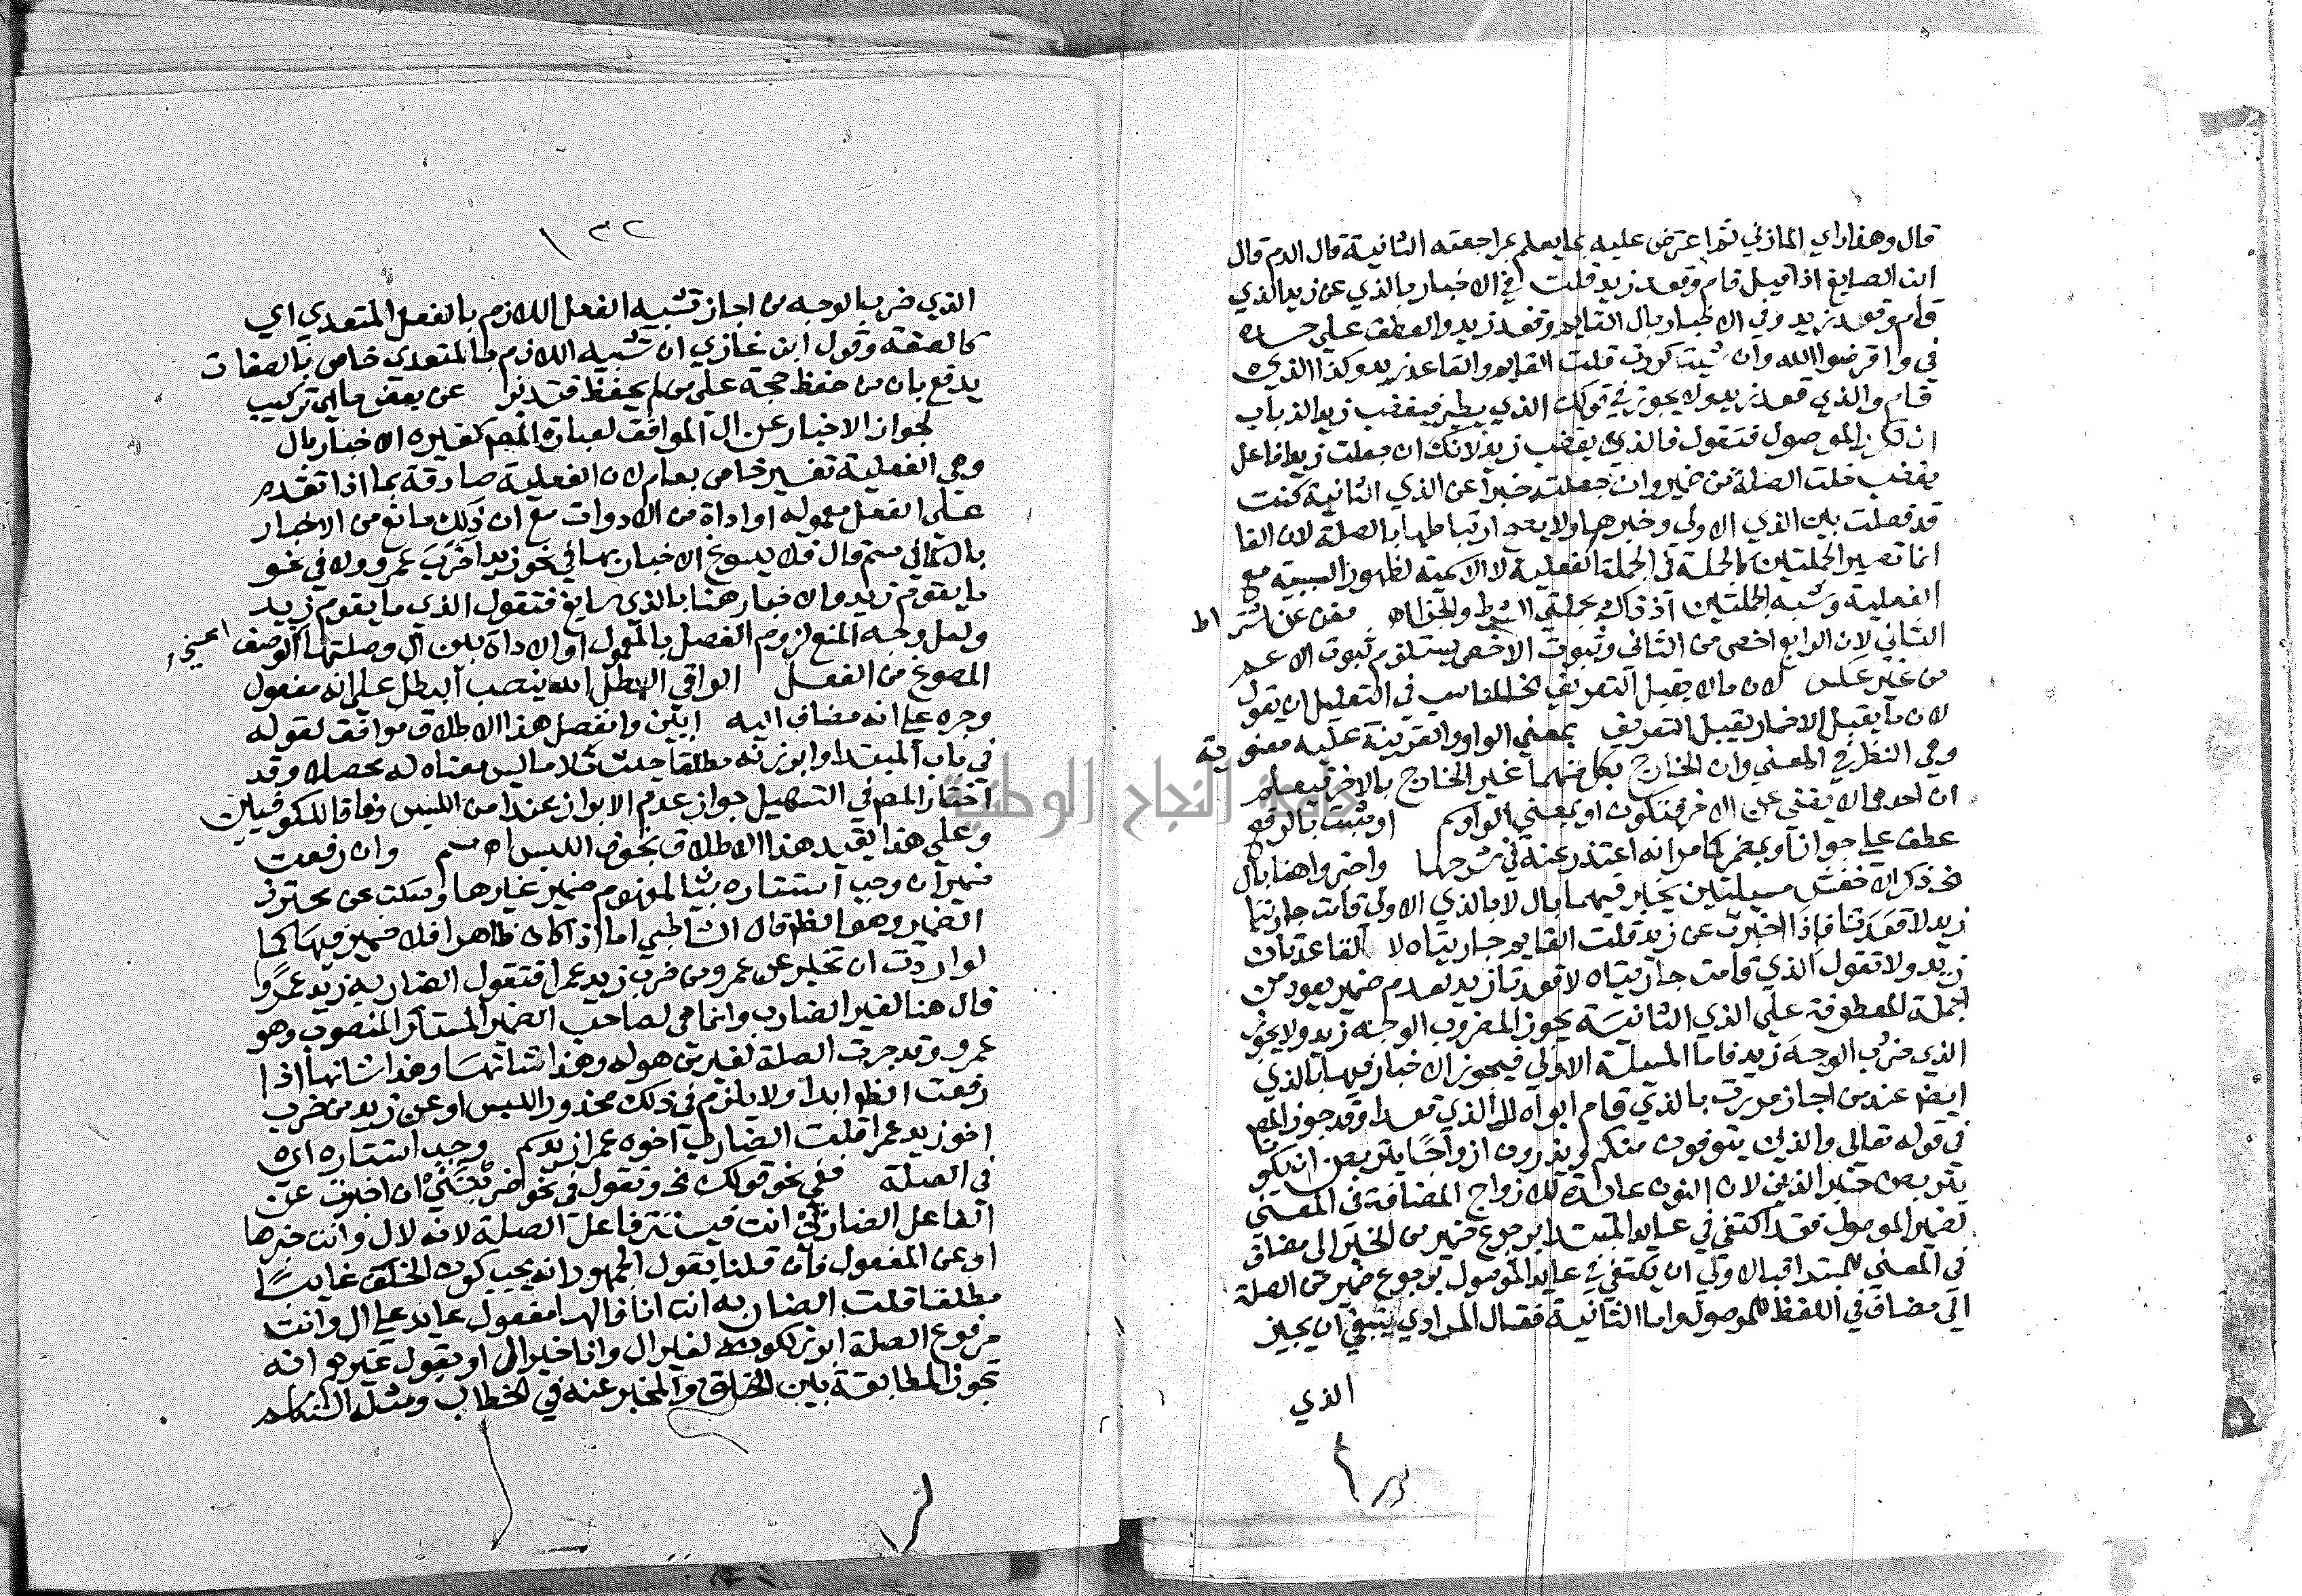 قال وهذا راي المازني ثم اعترض عليه بما يعلم بمراجعته الثانية قال الدم قال
ابن الصايغ اذا قيل قام وقعد زيد قلت في الاخبار بالذي عن زيد الذي
قام وقعد زيد وفي الاخبار بال القايم وقعد زيد والعطف على حد
في واقرضوا الله وان شيت كررت قلت القايم والقاعد زيد وكذا الذي
قام والذي قعد زيد ولا يجوز في قولك الذي يطير فيغضب زيد الذباب
ان تكرر الموصول فتقول فالذي يغضب زيد لانك ان جعلت زيدا فاعل
يغضب خلت الصلة من ضمير وان جعلته خبرا عن الذي الثانية كنت
قد فصلت بين الذي الاولى وخبرها ولا يصح ارتباطها بالصلة لان الفا
انما تصير الجملتين كالجملة في الجملة الفعلية لا الاسمية لظهور السببية مع
الفعلية وشبه الجملتين اذ ذاك بجملتي الشرط والجزاء مغن عن اشتراط
الثاني لان الرابع اخص من الثاني وثبوت الاخص يستلزم ثبوت الاعم
من غير عكس لان ما لا يقبل التعريف الخ المناسب في التعليل ان يقول
لان ما يقبل الاخبار يقبل التعريف بمعني الواو والقرينة عليه معنوية
وهي النظر في المعني وان الخارج بكل منهما غير الخارج بالاخر فيعلم
ان احدهما لا يغني عن الاخر فتكون او بمعني الواو سم او مثبت بالرفع
عطف على جوازا ويضر كما مر انه اعتذر عنه في شرحها واخبروا هنا بال
الخ ذكر الاخفش مسيلتين يخبر فيهما بال لا بالذي الاولى قامت جاريتا
زيد لا قعدتا فاذا اخبرت عن زيد قلت القايم جاريتاه لا القاعدتان
زيد ولا تقول الذي قامت جاريتاه لا قعدتا زيد لعدم ضمير يعود من
الجملة المعطوفة على الذي الثانية يجوز المضروب الوجه زيد ولا يجوز
الذي ضرب الوجه زيد فاما المسيلة الاولى فيجوز الاخبار فيها بالذي
ايضا عند من اجاز مررت بالذي قام ابواه لا الذي قعدا وقد جوز المص
في قوله تعالى والذين يتوفون منكم ويذرون ازواجا يتربصن ان يكون
يتربصن خبر الذين لان النون عايدة للازواج المضافة في المعني
لضمير الموصول فقد اكتفي في عايد المبتدا برجوع ضمير من الخبر الى مضاف
في المعني للمبتدا فبالاولى ان يكتفي في عايد الموصول برجوع ضمير من الصلة
الى مضاف في اللفظ للموصول واما الثانية فقال المرادي ينبغي ان يجيز
الذي
١٣٢
الذي ضرب الوجه من اجاز تشبيه الفعل اللازم بالفعل المتعدي اي
كالصفة وقول ابن غازي ان تشبيه اللازم بالمتعدي خاص بالصفات
يدفع بان من حفظ حجة على من لم يحفظ فتدبر عن بعض ما اي تركيب
لجواز الاخبار عن ال الموافق لعبارة المص كغيره الاخبار بال
وهي الفعلية تفسير خاص بعام لان الفعلية صادقة بما اذا تقدم
على الفعل معموله او اداة من الادوات مع ان ذلك مانع من الاخبار
بال كما في سم قال فلا يسوغ الاخبار بها في نحو زيدا ضرب عمرو ولا في نحو
ما يقوم زيد والاخبار هنا بالذي سايغ فتقول الذي ما يقوم زيد
ولعل وجه المنع لزوم الفصل بالمعمول او الاداة بين ال وصلتها الوصف اعني
المصوغ من الفعل الواقي البطل الله ينصب البطل على انه مفعول
وجره على انه مضاف اليه ابين وانفصل هذا الاطلاق موافق لقوله
في باب المبتدا وابرزنه مطلقا حيث تلا ما ليس معناه له محصلا وقد
اختار المص في التسهيل جواز عدم الابراز عند امن اللبس وفاقا للكوفيين
وعلى هذا يقيد هذا الاطلاق بخوف اللبس اه سم وان رفعت
ضمير ال وجب استتاره بيان لمفهوم ضمير غيرها وسكت عن محترز
الضمير وهو الظ قال الشاطبي اما اذا كان ظاهرا فلا ضمير فيها كما
لو اردت ان تخبر عن عمرو من ضرب زيد عمرا فتقول الضاربه زيد عمرو
قال هنا لغير الضارب وانما هي لصاحب الضمير المستتر المنصوب وهو
عمرو وقد جرت الصلة لغير من هو له وهذا شانها وهذا شانها اذا
رفعت الظ ابدا ولا يلزم في ذلك محذور اللبس او عن زيد من ضرب
اخو زيد عمرا قلت الضارب اخوه عمرا زيد سم وجب استتاره اي
في الصلة ففي نحو قولك الخ وتقول في نحو ضربتني ان اخبرت عن
الفاعل الضاربي انت فيستتر فاعل الصلة لانه لال وانت خبرها
او عن المفعول فان قلنا بقول الجمهور انه يجب كون الخلف غايبا
مطلقا قلت الضاربه انت انا فالها مفعول عايد على ال وانت
مرفوع الصلة ابرز لكونه لغير ال وانا خبر ال او بقول غيرهم انه
تجوز المطابقة بين الخلف والمخبر عنه في الخطاب ومثله التكلم
جامعة النجاح الوطنية